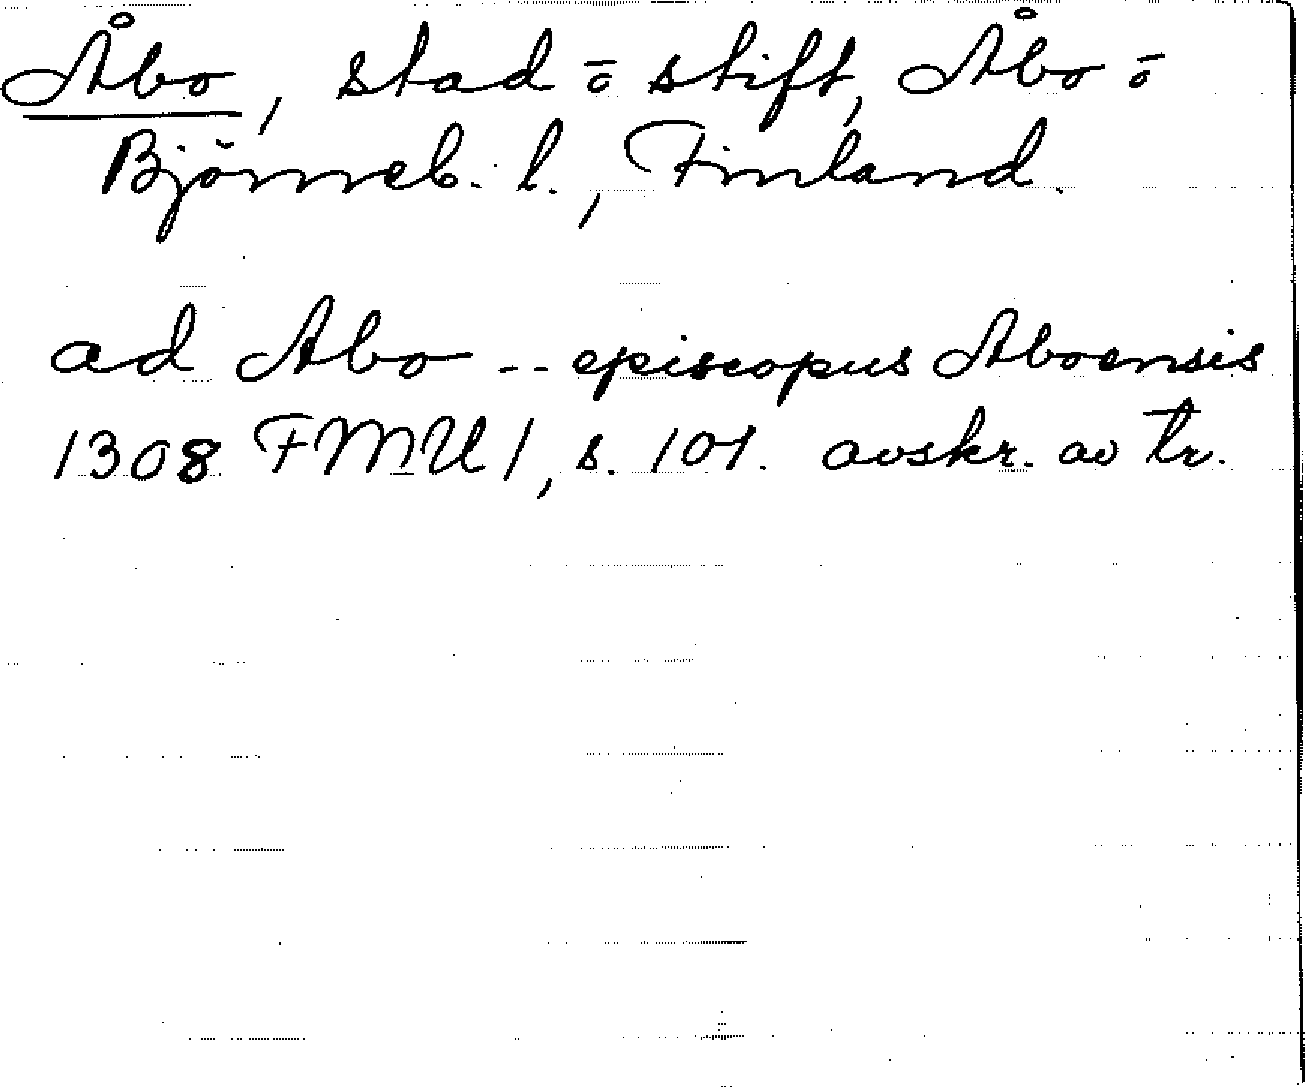 Åbo, stad ō stift, Åbo ō
Björneb. l., Finland.
ad Abo -- episcopus Aboensis
1308 FMU 1, s. 101. avskr. av tr.